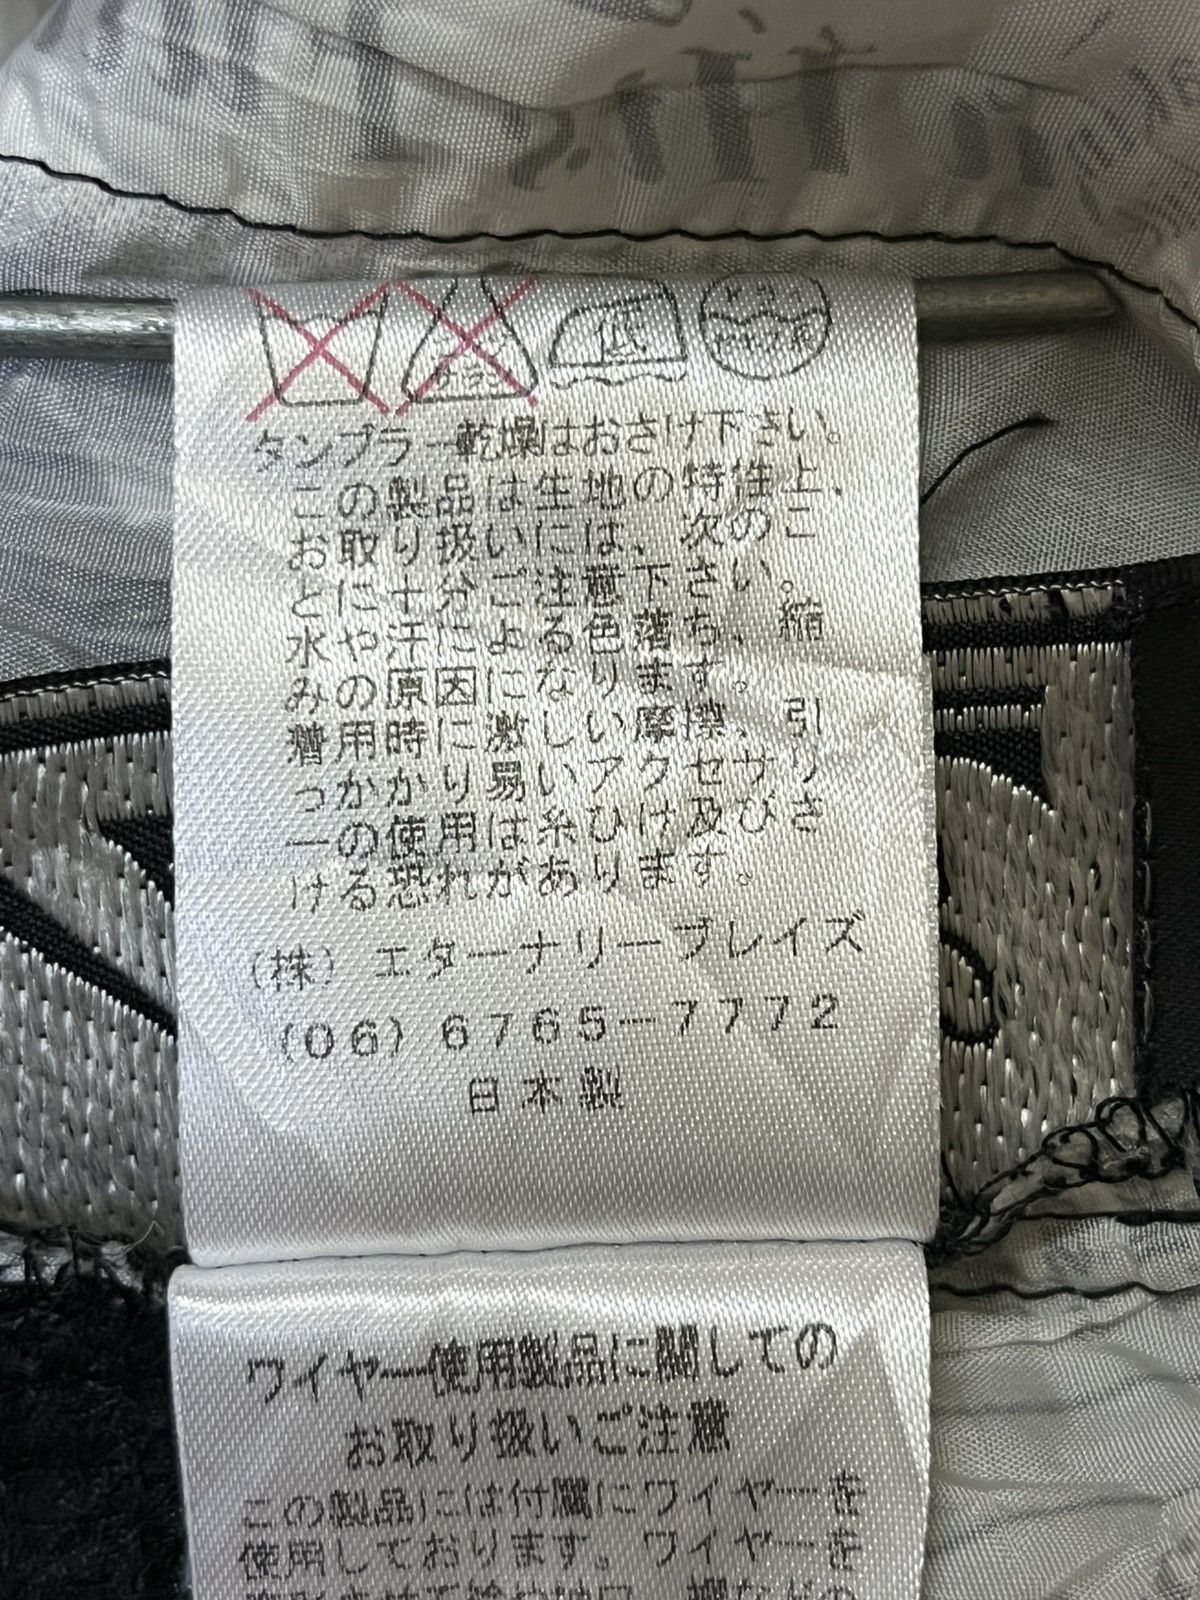 低
ドライ
セキユ系
タンブラー乾燥はおさけ下さい。
この製品は生地の特性上、
お取り扱いには、次のこ
とに十分ご注意下さい。
水や汗による色落ち、縮
みの原因になります。
着用時に激しい摩擦、引
っかかり易いアクセサリ
ーの使用は糸ひけ及びさ
ける恐れがあります。
(株)エターナリーブレイズ
(06)6765-7772
日本製
ワイヤー使用製品に関しての
お取り扱いご注意
この製品には付属にワイヤーを
使用しております。ワイヤーを